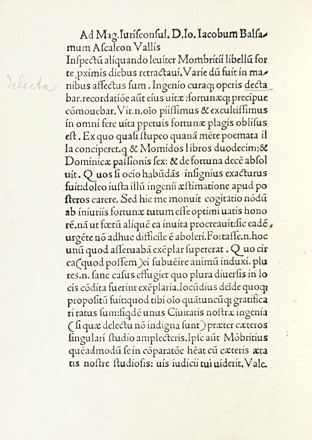 Ad Mag. Iurisconsul. D. Io. Iacobum Balsa-
mum Ascalcon Vallis
Inspectũ aliquando leuiter Mombritii libellũ for
te ,pximis diebus retractaui. Varie dũ fuit in ma-
nibus affectus sum. Ingenio curaq; operis decta
delecta
bar. recordatiõe aut eius uitæ: fortunæq; precipue
cõmouebar. Vir. n. oio piissimus & excultissimus
in omni fere uita ppetuis fortunæ plagis oblisus
est. Ex quo quasi stupeo quanã mẽte poemata il
la conciperet, q & Momidos libros duodecim: &
Dominicæ passionis sex: & de fortuna decẽ absol
uit. Quos si ocio habũdãs insignius exacturus
fuit: doleo iusta illũ ingenii æstimatione apud po
steros carere. Sed hic me monuit cogitatio nõdũ
ab iniuriis fortunæ tutum esse optimi uatis hono
rẽ. nã ut fœtũ aliquẽ ea inuita procreauit: sic eadẽ
urgẽte nõ adhuc difficile ẽ aboleri. Fortasse. n. hoc
unũ quod asseruabã exẽplar supererat. Quo cir
ca (quod possem) ei subuẽire animũ induxi. plu
res. n. sanc casus effugiet quo plura diuersis in lo
cis cõdita fuerint exẽplaria. Iocũdius deide quoq;
propositũ fuit: quod tibi oio quãtuncũq; gratifica
ri ratus sum: siqdẽ unus Ciuitatis nostræ ingenia
(si quæ delectu nõ indigna sunt) præter cæteros
singulari studio amplecteris. Ipse aut Mõbritius
quẽadmodũ se in cõparatõe hẽat cũ cæteris æta
tis nostre studiosis: uis iudicii tui uiderit. Vale.